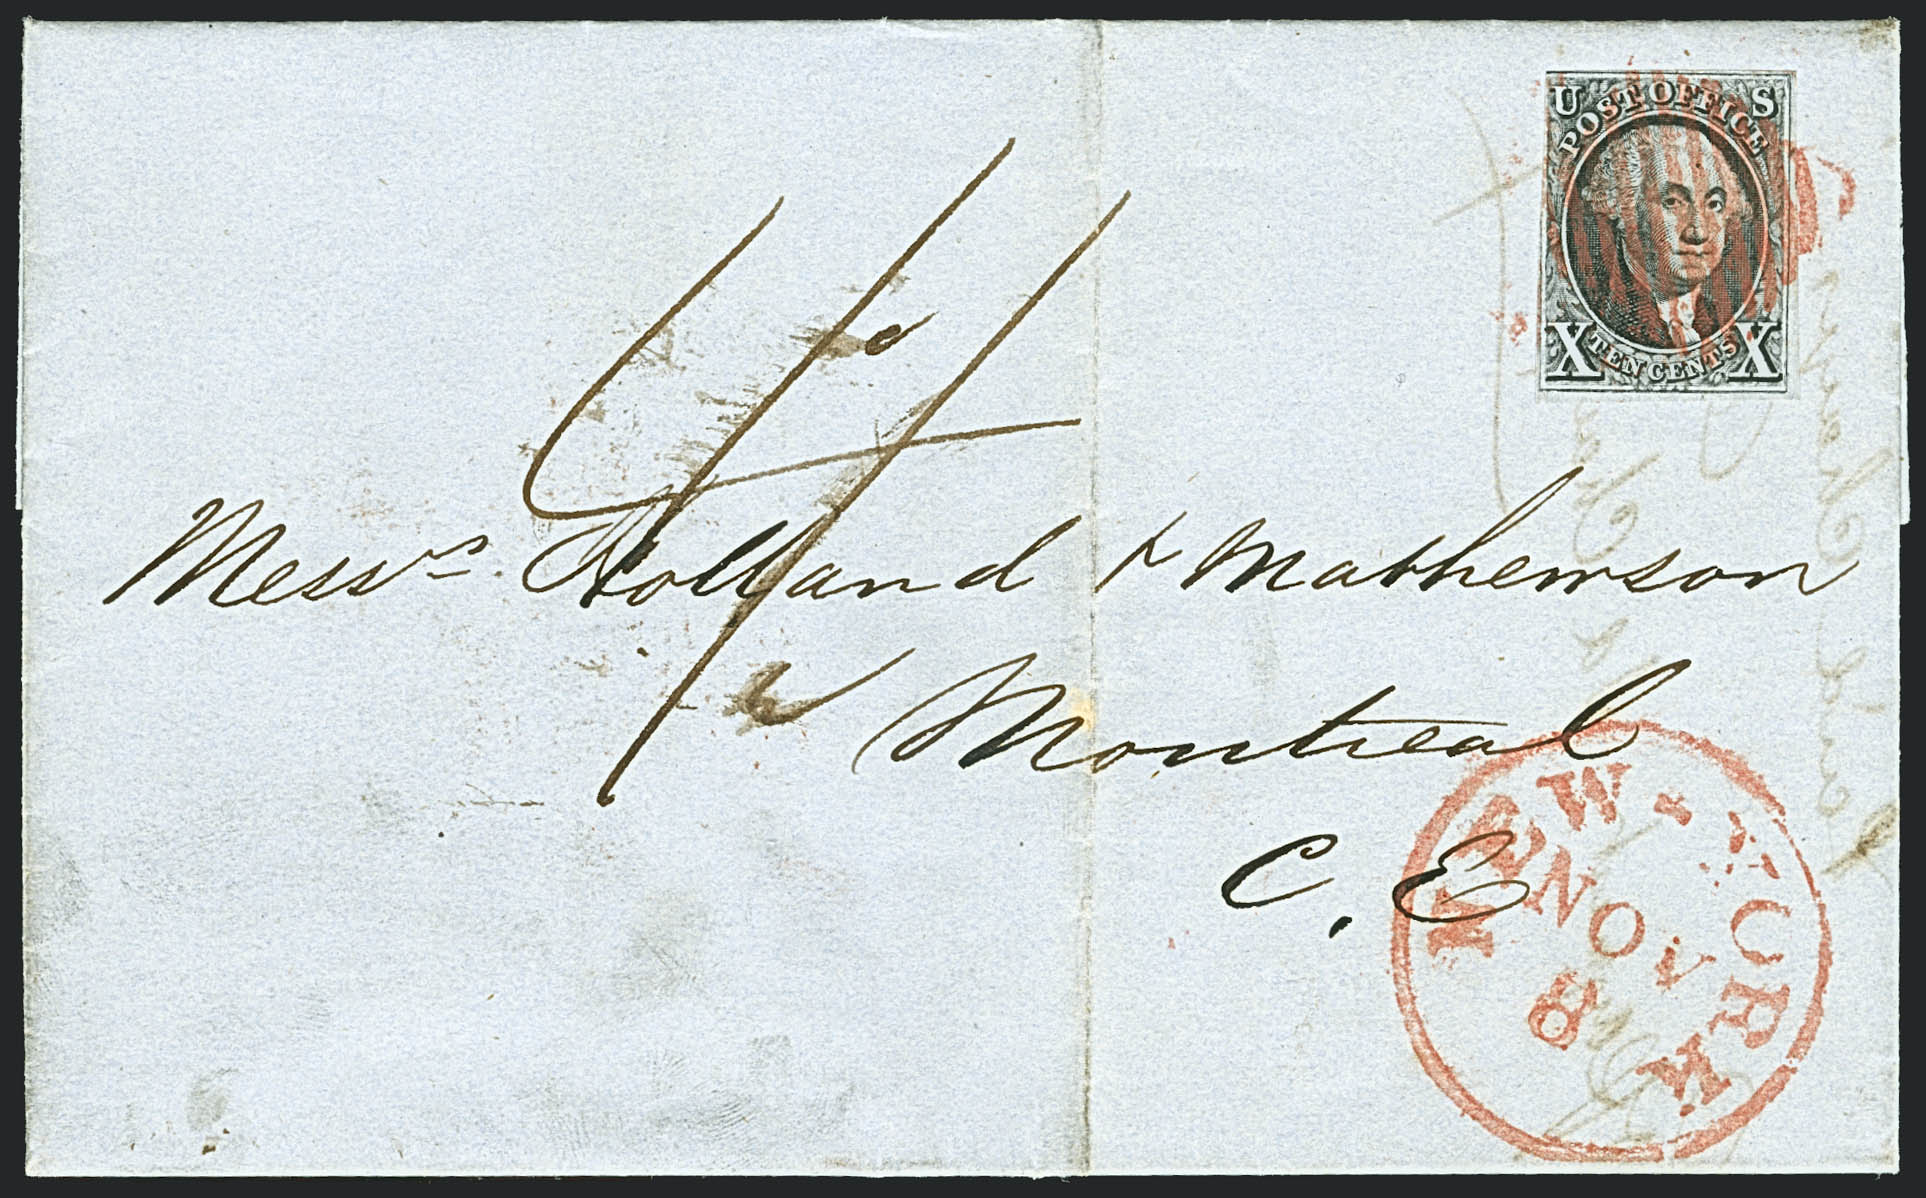 U S
POST OFFICE
X TEN CENTS X
Messrs. Holland & Mathewson
Montreal
C. E
NEW-YORK
NOV
8